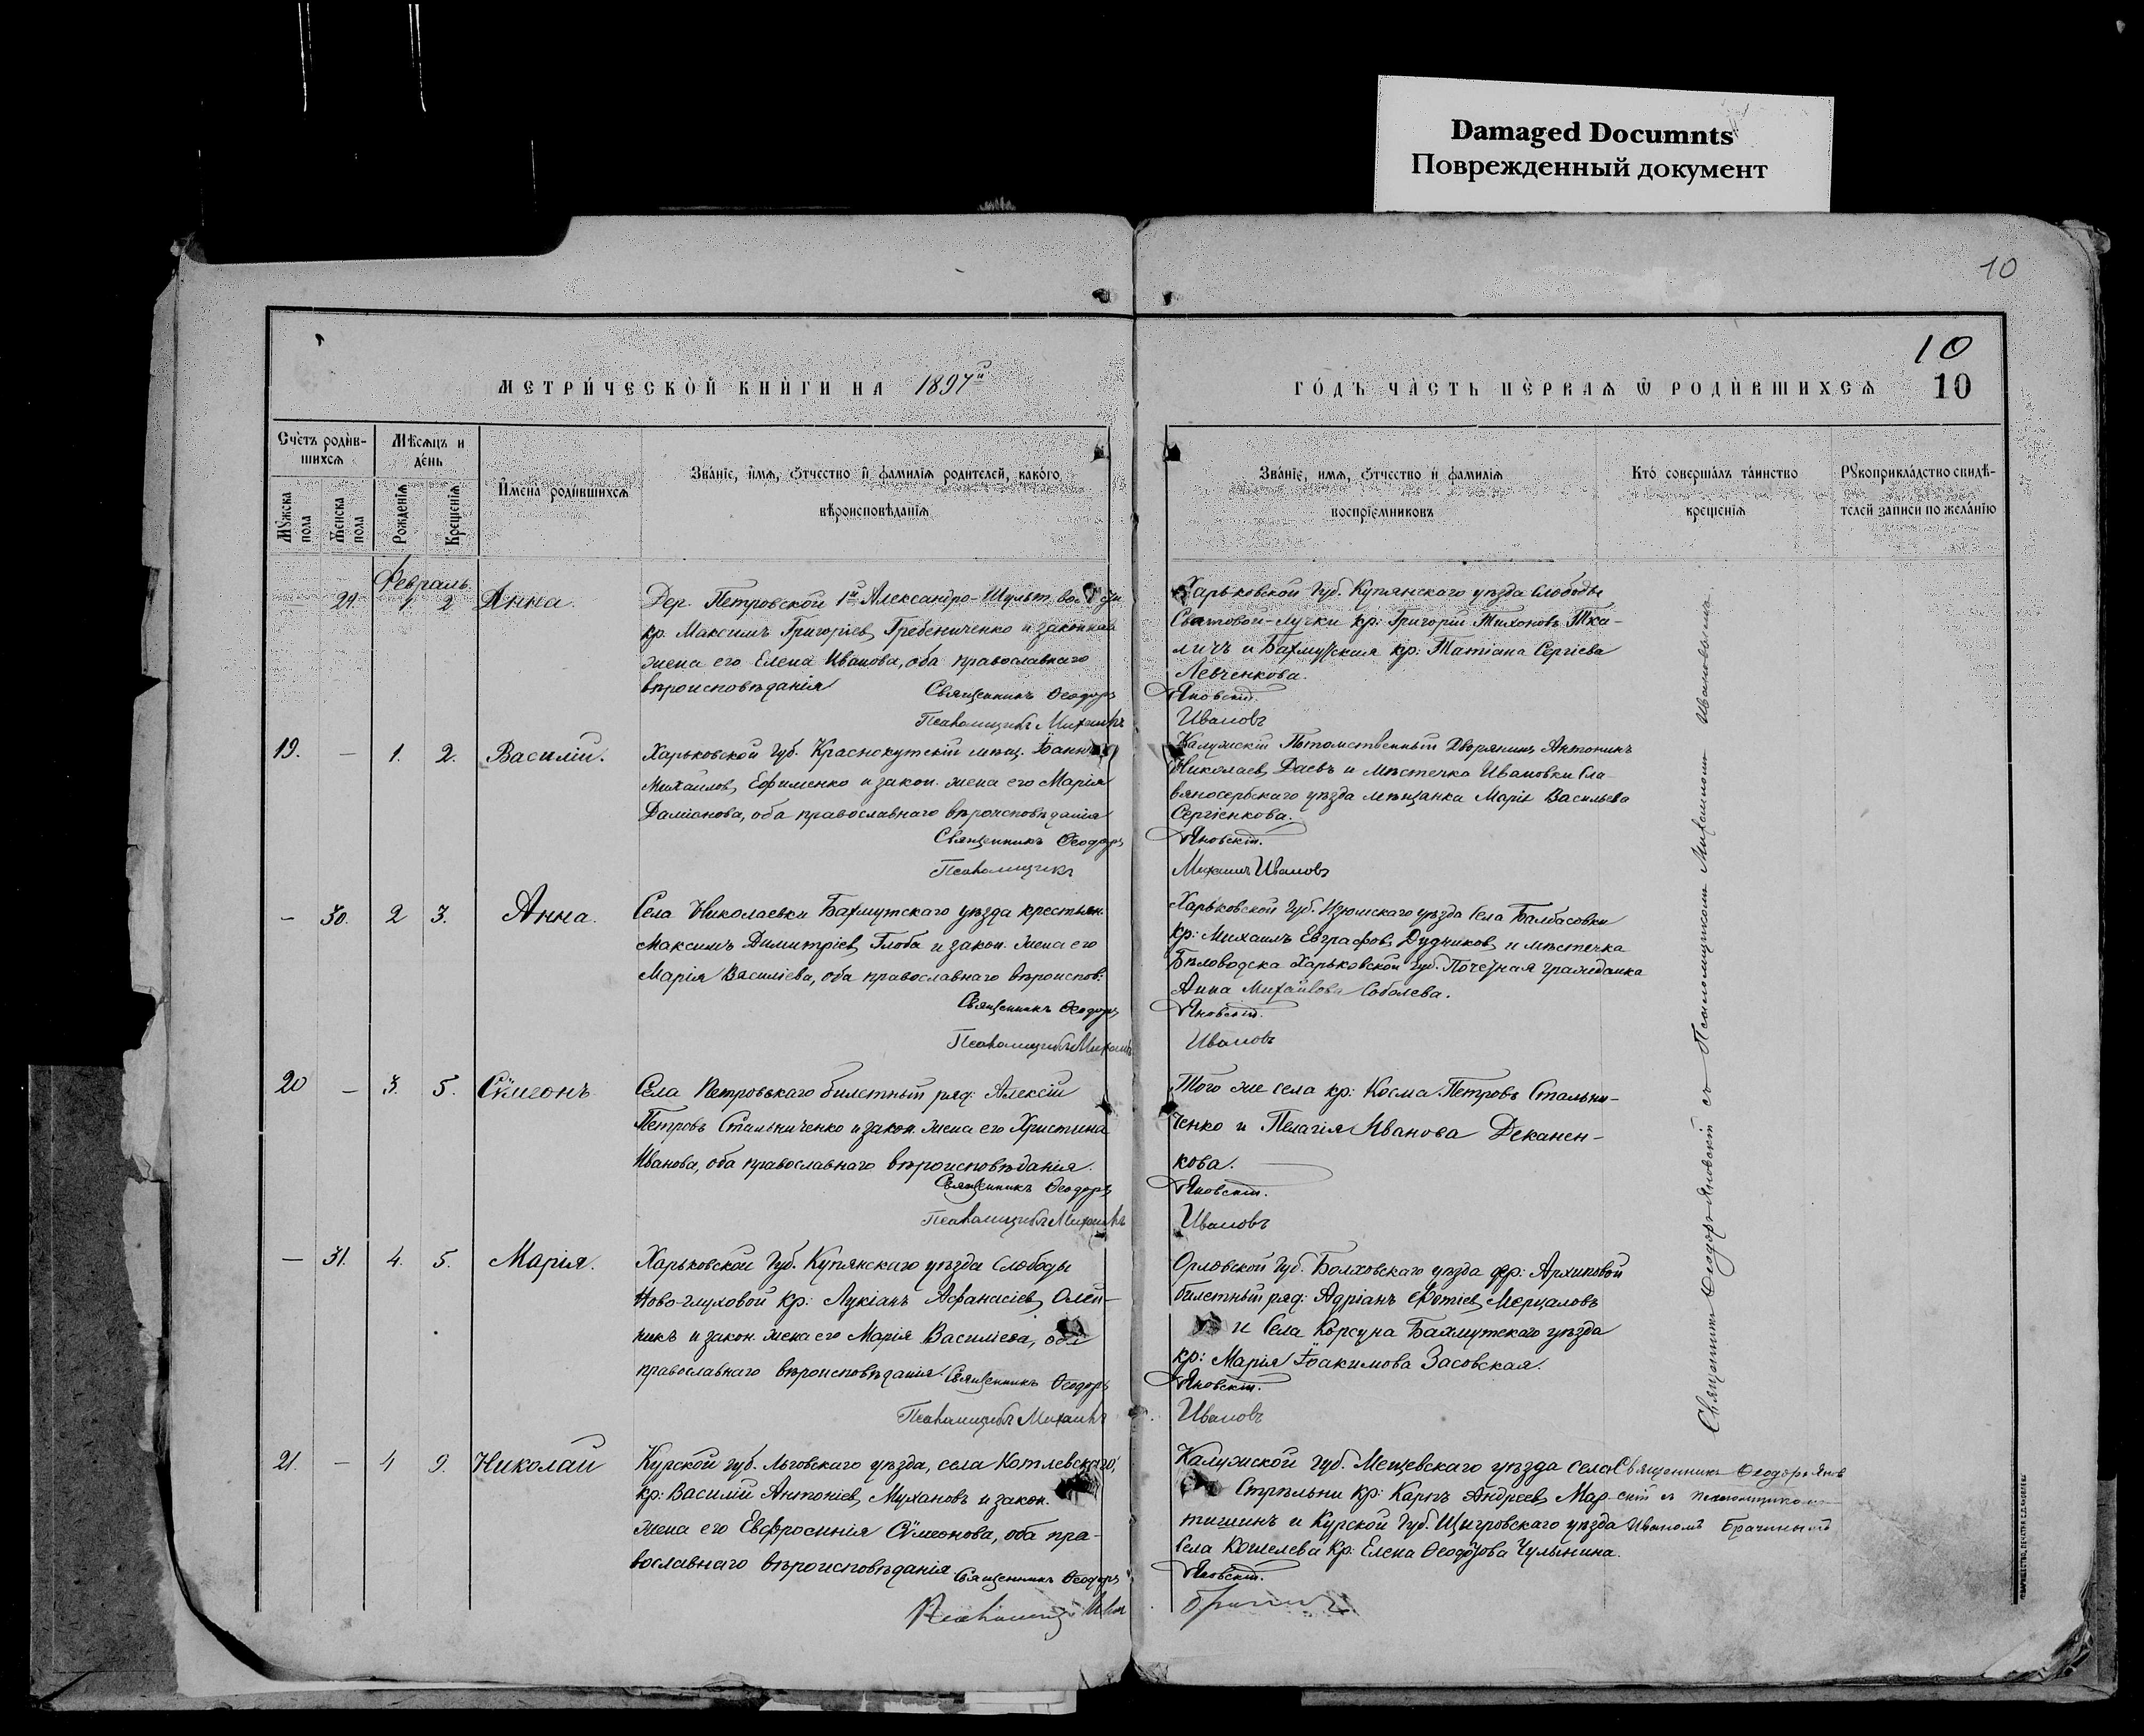 Damaged Documnts
Поврежденный документ
10
10
МЕТРИ́ЧЕСКОЙ КНИ́ГИ НА 1897й
ГО́ДЪ ЧА́СТЬ ПЕ́РВАѦ Ѿ РОДИ́ВШИХСѦ 10
Сче́тъ роди́в-
шихсѧ
Мѣ́сѧцъ и
де́нь
Имена̀ роди́вшихсѧ
Зва́нїе, и́мѧ, ѻ́тчество и҆ фами́лїѧ роди́телей, како́го
вѣроисповѣ́данїѧ
Зва́нїе, и́мѧ, ѻ́тчество и҆ фами́лїѧ
воспрїе́мниковъ
Кто̀ соверша́лъ та́инство
креще́нїѧ
Рꙋкоприкла́дство свидѣ́-
телей за́писи по жела́нїю
Мꙋ́жска
пола
Же́нска
пола
Рожденїѧ
Крещенїѧ
Февраль
— 29. 1. 2 Анна.
Дер. Петровской 1й Александро-Шульт.
кр. Максимъ Григоріев Гребениченко и законная
жена его Елена Иванова, оба православнаго
вѣроисповѣданія
Священникъ Ѳеодоръ
Псаломщикъ Михаилъ
Харьковской Губ. Купянскаго уѣзда Слободы
Сватовой-Лучки кр: Григорій Тихоновъ Тка-
личъ и Бахмутская кр: Татіана Сергіева
Левченкова.
Яновскій.
Ивановъ
19. — 1. 2. Василій.
Харьковской Губ. Краснокутскій мѣщ. Іоаннъ
Михаилов Ефименко и закон. жена его Марія
Даміанова, оба православнаго вѣроисповѣданія
Священникъ Ѳеодоръ
Псаломщикъ
Калужскій Потомственный Дворянинъ Антонинъ
Николаев Даевъ и мѣстечка Ивановки Сла-
вяносербскаго уѣзда мѣщанка Марія Васильева
Сергіенкова.
Яновскій.
Михаилъ Ивановъ
— 30. 2 3. Анна.
Села Николаевки Бахмутскаго уѣзда крестьян.
Максимъ Димитріев Глоба и закон. жена его
Марія Василіева, оба православнаго вѣроиспов:
Священникъ Ѳеодоръ
Псаломщикъ Михаилъ
Харьковской Губ. Изюмскаго уѣзда Села Балбасовки
кр: Михаилъ Евграфов Дудников и мѣстечка
Бѣловодска Харьковской Губ. Почетная гражданка
Анна Михайлова Соболева.
Яновскій.
Ивановъ
20 — 3. 5. Сѵмеонъ
Села Петровскаго билетный ряд: Алексій
Петровъ Стальниченко и закон. жена его Христина
Иванова, оба православнаго вѣроисповѣданія.
Священникъ Ѳеодоръ
Псаломщикъ Михаилъ
Того же села кр: Косма Петровъ Стальни-
ченко и Пелагія Иванова Деканен-
кова.
Яновскій.
Ивановъ
— 31. 4. 5. Марія.
Харьковской Губ. Купянскаго уѣзда Слободы
Ново-глуховой кр: Лукіанъ Афанасіев Олей-
никъ и закон. жена его Марія Василіева, оба
православнаго вѣроисповѣданія.
Священникъ Ѳеодоръ
Псаломщикъ Михаилъ
Орловской Губ. Болховскаго уѣзда дер: Архиповой
билетный ряд: Адріанъ Фотіев Мерцаловъ
и Села Корсуна Бахмутскаго уѣзда
кр: Марія Іоакимова Засовская.
Яновскій.
Ивановъ
Священникъ Ѳеодоръ Яновскій съ Псаломщикомъ Михаиломъ Ивановымъ.
21. — 4 9. Николай
Курской губ. Льговскаго уѣзда, села Котлевскаго,
кр: Василій Антоніев Мухановъ и закон.
жена его Евфросинія Сѵмеонова, оба пра-
вославнаго вѣроисповѣданія.
Священникъ Ѳеодоръ
Псаломщ. Иван
Калужской губ. Мещевскаго уѣзда села
Стрѣльни кр: Карпъ Андреев Мар-
тишинъ и Курской Губ. Щигровскаго уѣзда
Села Кошелева кр: Елена Ѳеодорова Чулынина.
Яновскій.
Священникъ Ѳеодоръ Янов
скій съ псаломщикомъ
Иваномъ